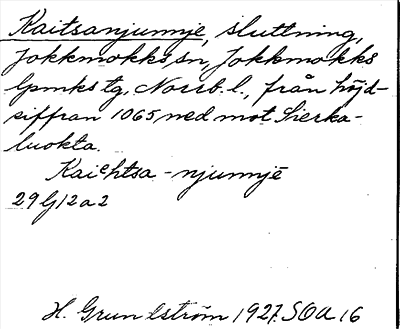 Kaitsanjunnje, sluttning,
Jokkmokks sn, Jokkmokks
lpmks tg, Norrb. l., från höjd-
siffran 1065 ned mot Sierka-
luokta.
Kaiᵉhtsa-njunnjē
29 G 12 a 2
H. Grundström 1927. SOA 16